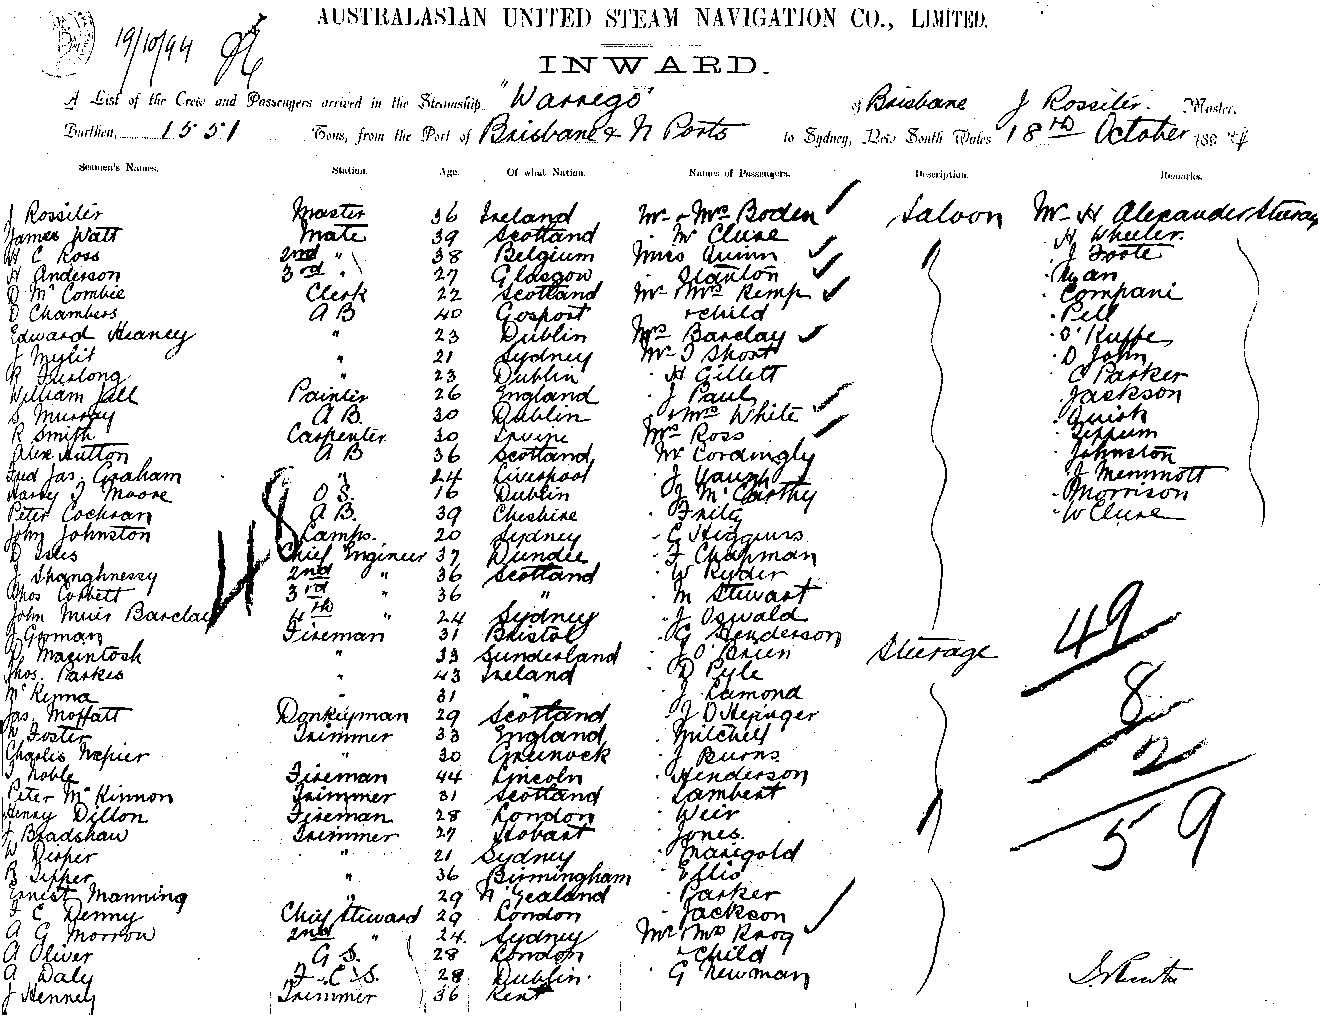 AUSTRALASIAN UNITED STEAM NAVIGATION CO., LIMITED.
19/10/94
INWARD.
A List of the Crew and Passengers arrived in the Steamship "Warrego" of Brisbane J Rossiter Master.
Burthen, 1551 Tons, from the Port of Brisbane & N Ports to Sydney, New South Wales 18th October 1894
Seamen's Names. Station. Age. Of what Nation. Names of Passengers. Description. Remarks.
J Rossiter Master 36 Ireland Mr & Mrs Boden Saloon Mr H Alexander Steerag
James Watt Mate 39 Scotland " Mc Clure H Wheeler
H C Ross 2nd " 38 Belgium Miss Quinn J Foote
H Anderson 3rd " 27 Glasgow " Stanton Ryan
D McCombie Clerk 22 Scotland Mr Mrs Kemp Compani
D Chambers A B 40 Gosport & child Pell
Edward Heaney " 23 Dublin Mrs Barclay O'Kuffe
J " 21 Sydney Mr J Short D John
R Furlong " 23 Dublin H Gillett C Parker
William Painter 26 England J Paul Jackson
S Murray A B 30 Dublin " Mrs White Quish
R Smith Carpenter 30 Irvine Mrs Ross
Alex Hutton A B 36 Scotland Mr Cordingly Johnston
Fred Jas Graham " 24 Liverpool J Vaugh J Memmott
Harry J Moore O S. 16 Dublin J McCarthy Morrison
Peter Cochran A B. 39 Cheshire Fritz W Clure
John Johnston Lamps. 20 Sydney C Higgins
D Isles Chief Engineer 37 Dundee F Chapman
J Shanghnessy 2nd " 36 Scotland W Ryder
Thos Corbett 3rd " 36 " M Stewart
John Muir Barclay 4th " 24 Sydney J Oswald
J Gorman Fireman 31 Bristol G Henderson
D Macintosh " 33 Sunderland J O'Brien Steerage
Thos. Parkes " 43 Ireland D Pyle
McKenna " 31 " J Lamond
Jas. Moffatt Donkeyman 29 Scotland J
W Foster Trimmer 33 England Mitchell
Charlis Napier " 30 Greenock J Burns
J Noble Fireman 44 Lincoln Henderson
Peter McKinnon Trimmer 31 Scotland Lambert
Henry Dillon Fireman 28 London Weir
F Bradshaw Trimmer 27 Hobart Jones
W " 21 Sydney Marigold
B " 36 Birmingham Ellis
Ernest Manning " 29 N Zealand Parker
F C Denny Chief Steward 29 London Jackson
A G Morrow 2nd " 24 Sydney Mr Mrs
A Oliver G S. 28 London & child
A Daly F.C S. 28 Dublin G Newman
J Henney Trimmer 36 Kent
48
49
8
2
59